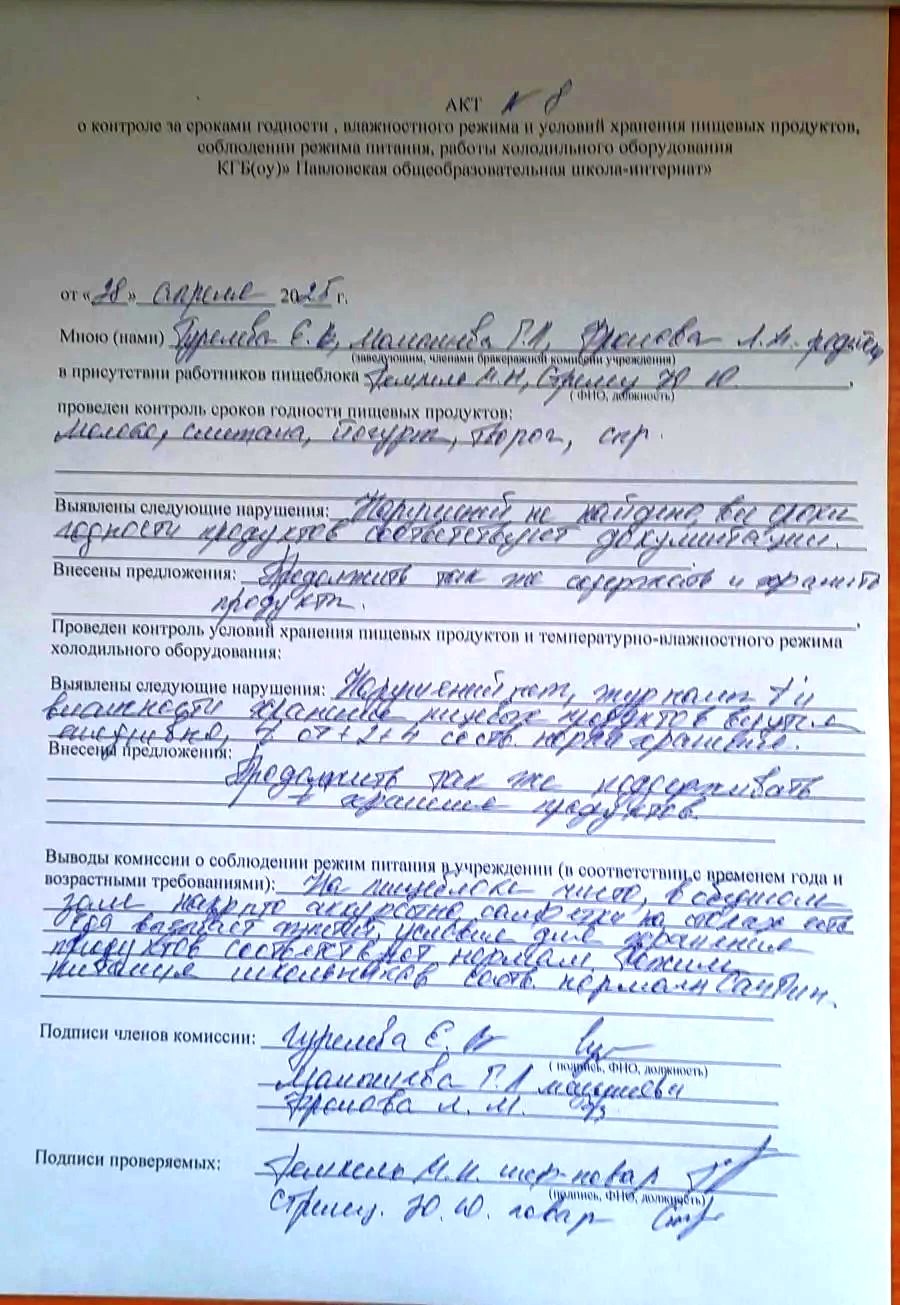 АКТ № 8
о контроле за сроками годности , влажностного режима и условий хранения пищевых продуктов,
соблюдении режима питания, работы холодильного оборудования
КГБ(оу)» Павловская общеобразовательная школа-интернат»
от «28» апреля 2025 г.
Мною (нами) Е. В, Г. Л, Л. М.
(заведующим, членами бракеражной комиссии учреждения)
в присутствии работников пищеблока М. Н, Стрелец Ю. Ю.,
( ФИО, должность)
проведен контроль сроков годности пищевых продуктов:
Молоко, сметана, йогурт, творог,
Выявлены следующие нарушения: Нарушений не найдено, все сроки
годности продуктов соответствуют документации.
Внесены предложения: Продолжить так же содержать и хранить
продукты.,
Проведен контроль условий хранения пищевых продуктов и температурно-влажностного режима
холодильного оборудования:
Выявлены следующие нарушения: Нарушений нет, журналы t и
влажности хранения продуктов
ежедневно, соотв. норме хранения.
Внесены предложения:
Продолжить так же поддерживать
t хранение продуктов.
Выводы комиссии о соблюдении режим питания в учреждении (в соответствии с временем года и
возрастными требованиями): На пищеблоке чисто, в обеденом
зале накрыто аккуратно, салфетки на столах есть
условия для хранения
продуктов соответствуют нормам. Режим
питания школьников соотв. нормам СанПин.
Подписи членов комиссии: Е. В
( подпись, ФИО, должность)
Г. Л
Л. М.
Подписи проверяемых: М. Н. шеф-повар
(подпись, ФИО, должность)
Стрелец. Ю. Ю. повар